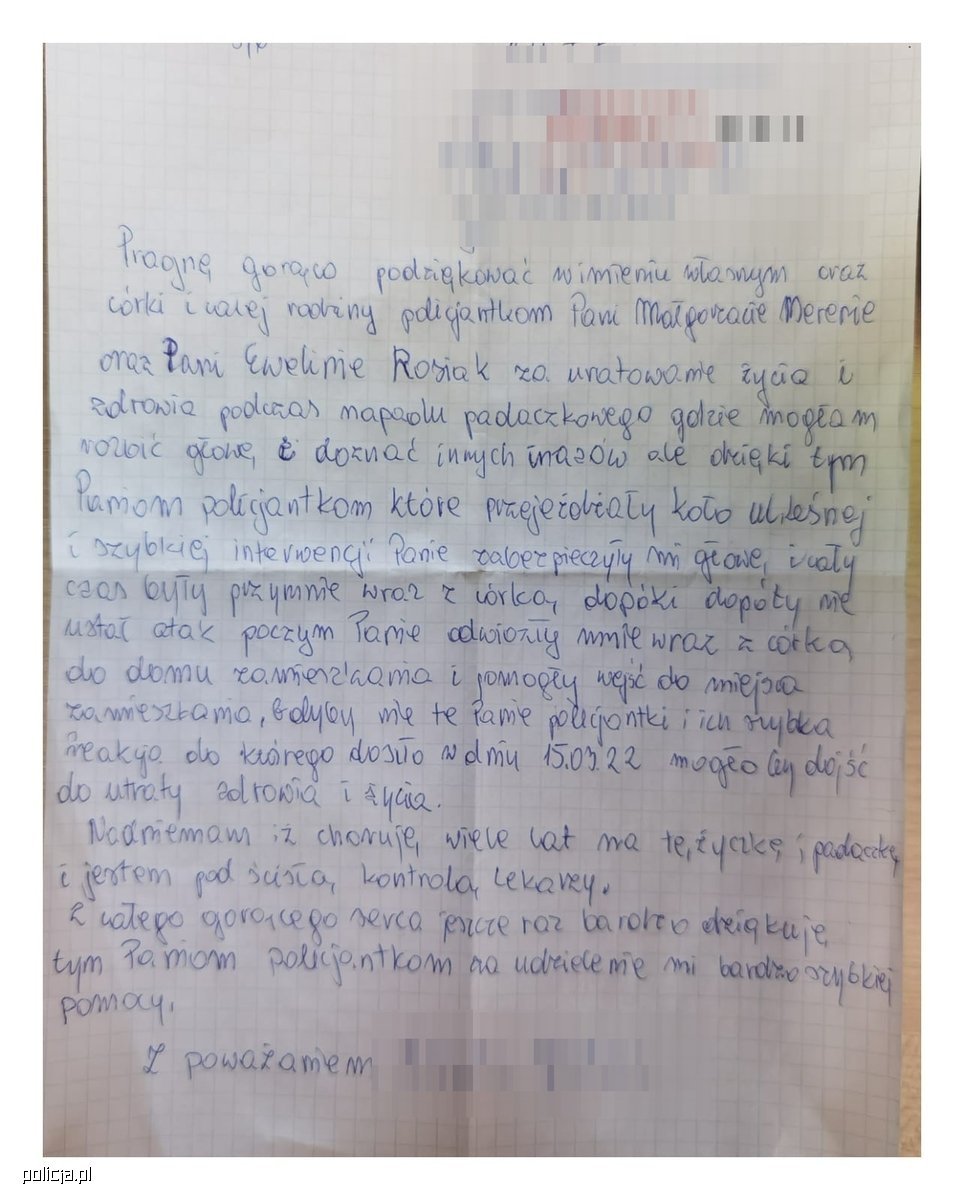 Pragnę gorąco podziękować w imieniu własnym oraz
córki i całej rodziny policjantkom Pani Małgorzacie Merenie
oraz Pani Ewelinie Rosiak za uratowanie życia i
zdrowia podczas napadu padaczkowego gdzie mogłam
rozbić głowę i doznać innych urazów ale dzięki tym
Paniom policjantkom które przejeżdżały koło ul. Leśnej
i szybkiej interwencji Panie zabezpieczyły mi głowę i cały
czas były przymnie wraz z córką dopóki dopóty nie
ustał atak poczym Panie odwiozły mnie wraz z córką
do domu zamieszkania i pomogły wejść do miejsca
zamieszkania, Gdyby nie te Panie policjantki i ich szybka
reakcja do którego doszło w dniu 15.03.22 mogło by dojść
do utraty zdrowia i życia.
Nadmieniam iż choruję wiele lat na tężyczkę i padaczkę
i jestem pod ścisłą kontrolą Lekarzy.
Z całego gorącego serca jeszcze raz bardzo dziękuję
tym Paniom policjantkom za udzielenie mi bardzo szybkiej
pomocy.
Z poważaniem
policja.pl